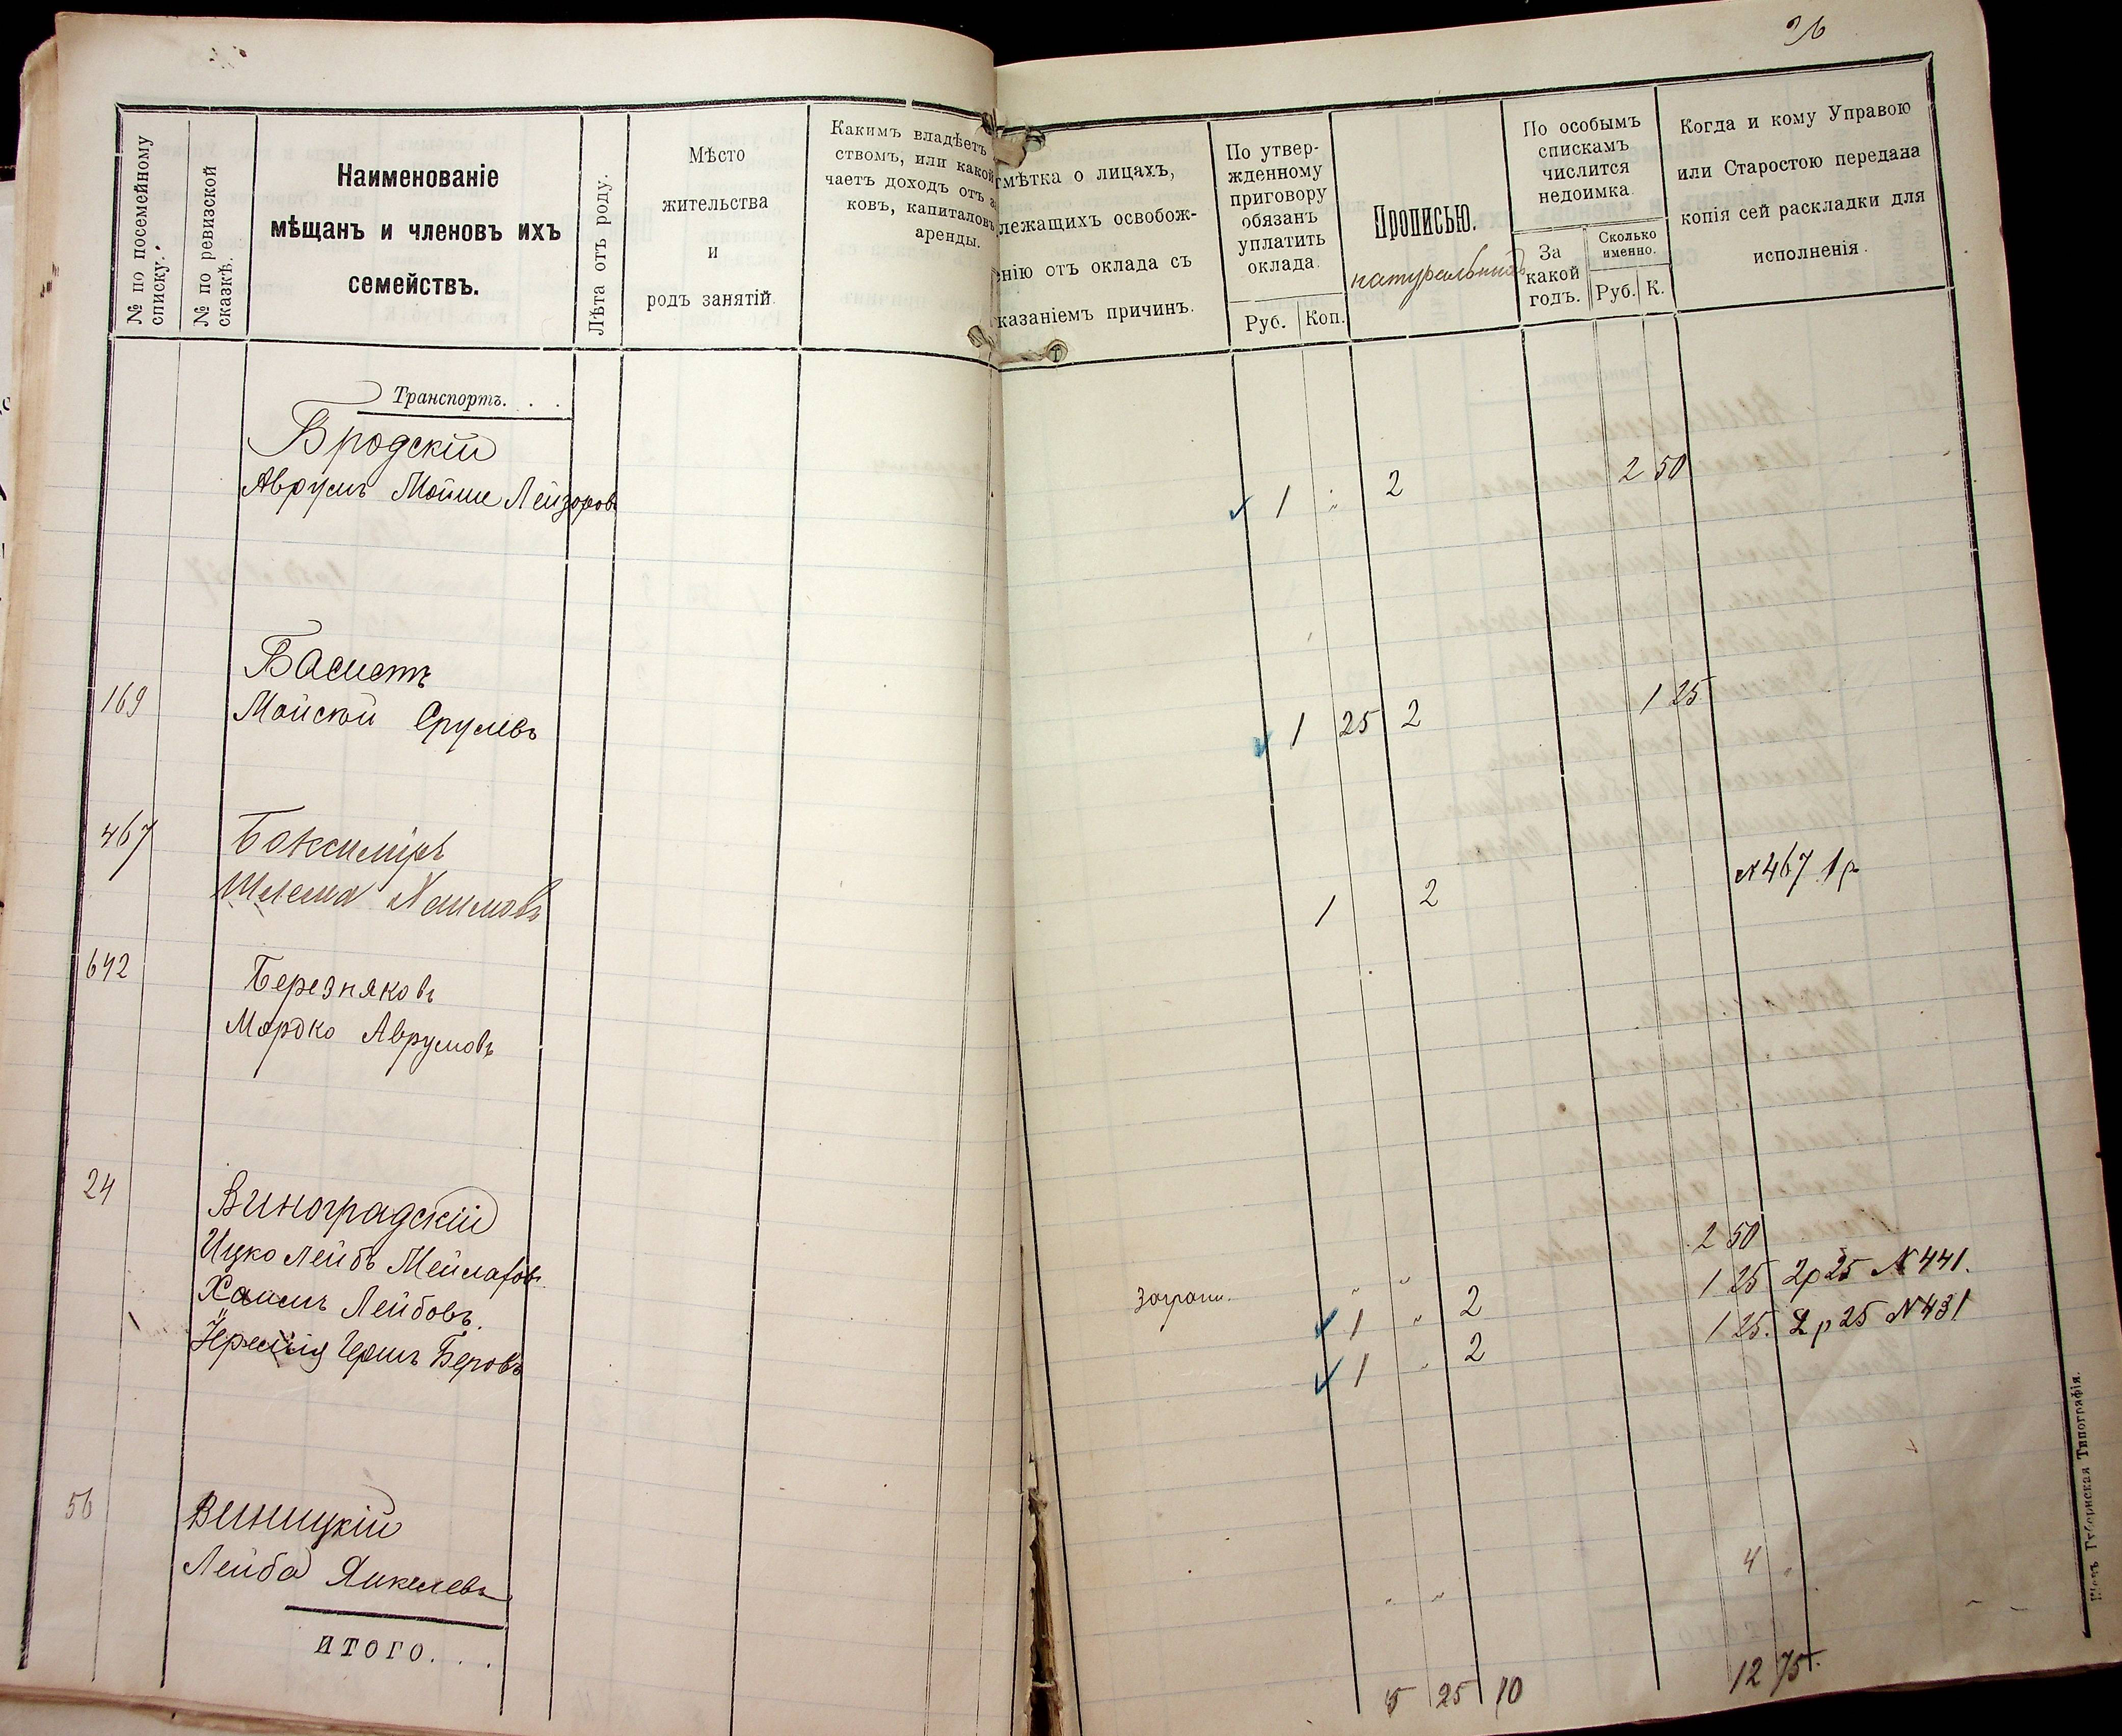 26
№ по посемейному списку.
№ по ревизской сказкѣ.
Наименованіе
мѣщанъ и членовъ ихъ
семействъ.
Лѣта отъ роду.
Мѣсто
жительства
и
родъ занятій.
Какимъ владѣетъ
ствомъ, или какой
чаетъ доходъ отъ
ковъ, капиталовъ
аренды.
мѣтка о лицахъ,
лежащихъ освобож-
енію отъ оклада съ
казаніемъ причинъ.
По утвер-
жденному
приговору
обязанъ
уплатить
оклада.
Руб. Коп.
Прописью.
натуральный
По особымъ
спискамъ
числится
недоимка.
За
какой
годъ.
Сколько
именно.
Руб. К.
Когда и кому Управою
или Старостою передана
копія сей раскладки для
исполненія.
Транспортъ. . .
Бродскій
Аврумъ Мойше Лейзоровъ 1 „ 2 2 50
Басистъ
169 Мойсей Срулевъ 1 25 2 1 25
467
Шлема Хаимовъ 1 2 № 467 1 р
642 Березняковъ
Мордко Аврумовъ
24 Виноградскій
Ицко Лейбъ 2 50
Хаимъ Лейбовъ. 1 „ 2 1 25 2р 25 № 441.
Гершъ Беровъ 1 „ 2 1 25. 2 р 25 № 431
56 Виницкій
Лейба Янкелевъ „ „ 4 „
ИТОГО. . . 5 25 10 12 75.
Губернская Типографія.